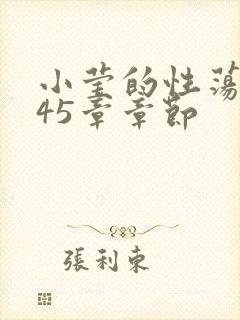 小莹的性荡
45章章节
張利東